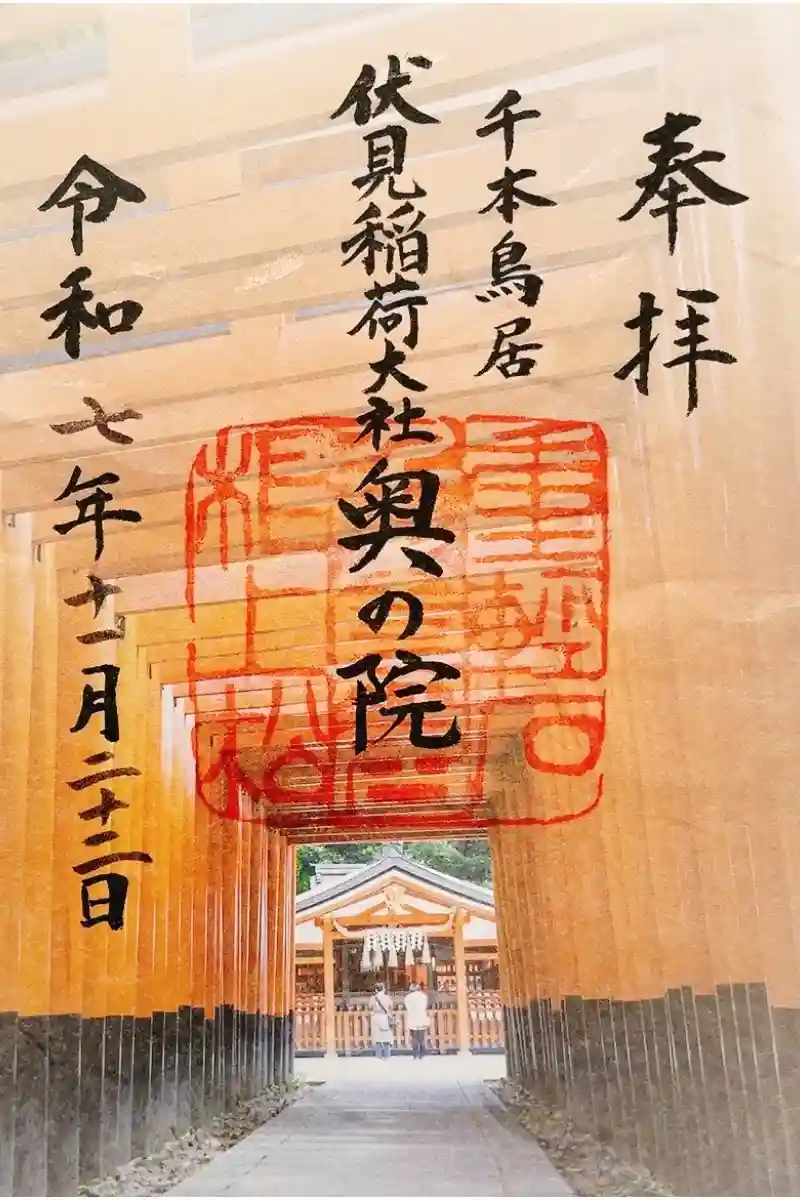 奉拝
千本鳥居
伏見稲荷大社奥の院
令和七年十一月二十二日